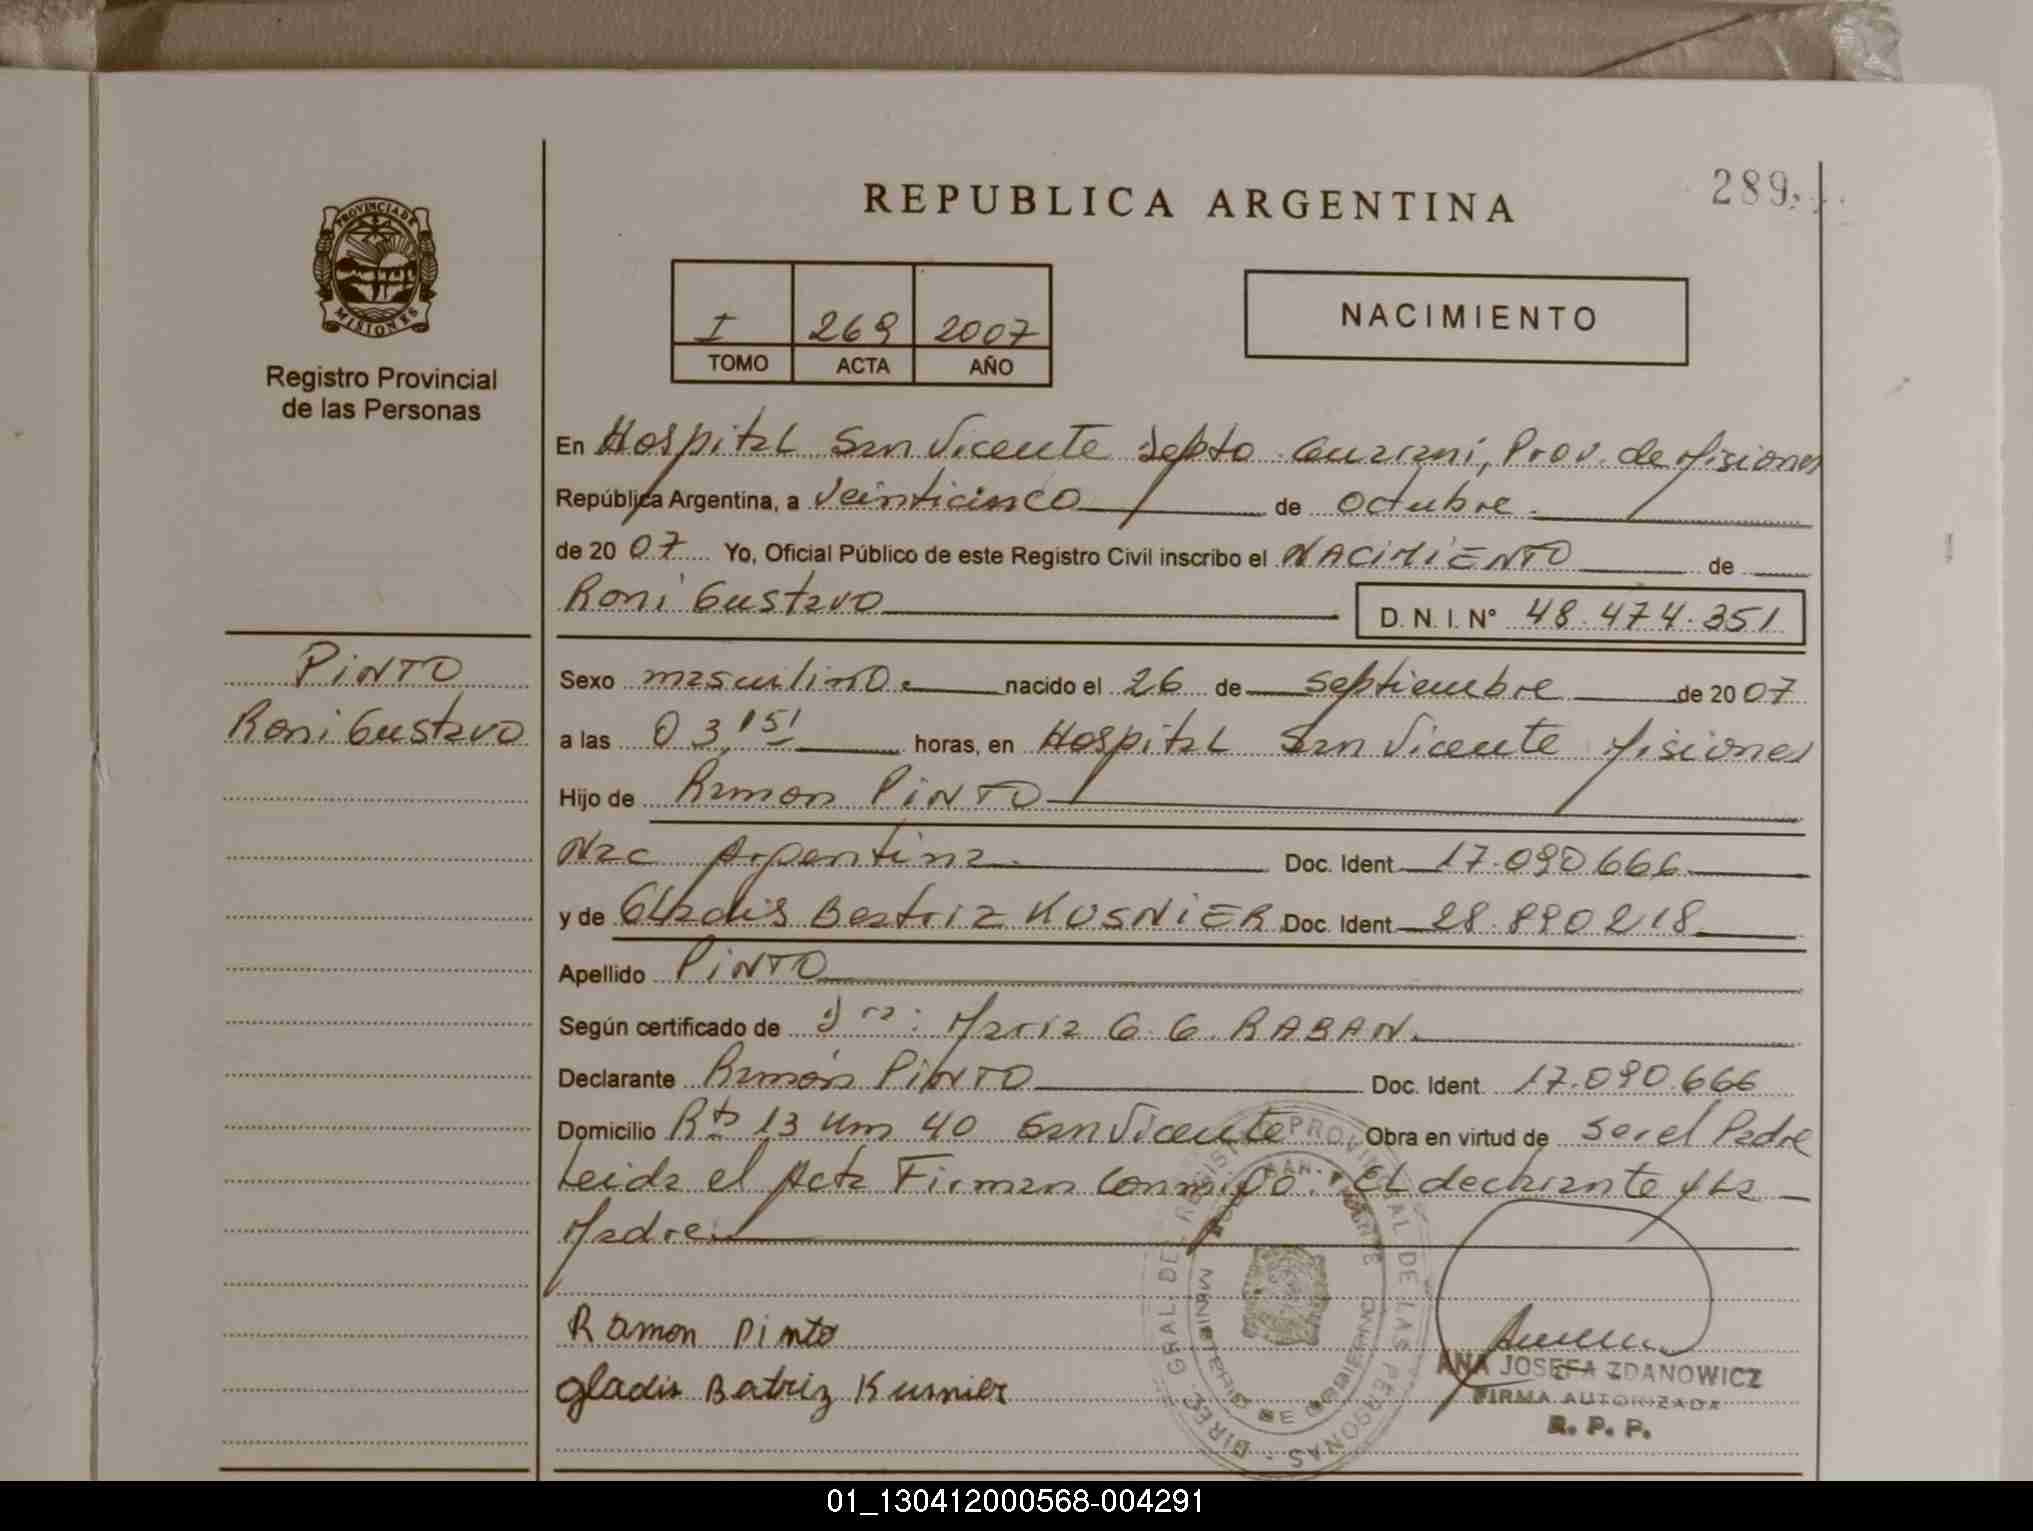 REPUBLICA ARGENTINA
289
PROVINCIA DE
MISIONES
Registro Provincial
de las Personas
I 269 2007
TOMO ACTA AÑO
NACIMIENTO
En Hospital San Vicente Depto Guarani, Prov. de Misiones
República Argentina, a Veinticinco de octubre.
de 20 07 Yo, Oficial Público de este Registro Civil inscribo el NACIMIENTO de
Roni Gustavo D. N. I. N° 48.474.351
PINTO
Roni Gustavo
Sexo masculino. nacido el 26 de septiembre de 20 07
a las 03,15 horas, en Hospital San Vicente Misiones
Hijo de Ramon PINTO
Nac Argentina. Doc. Ident. 17.090.666
y de Gladis Beatriz KUSNIER Doc. Ident. 28.890218
Apellido PINTO
Según certificado de Dra: Maria G. G. RABAN.
Declarante Ramón PINTO Doc. Ident. 17.090.666
Domicilio Rta 13 Km 40 San Vicente Obra en virtud de Ser el Padre
Leida el Acta Firman Conmigo. El declarante y La
Madre.
Ramon Pinto
gladis Batriz Kusnier
DIREC. GRAL. DEL REGISTRO PROVINCIAL DE LAS PERSONAS
MINISTERIO DE GOBIERNO
ANA JOSEFA ZDANOWICZ
FIRMA AUTORIZADA
R. P. P.
01_130412000568-004291